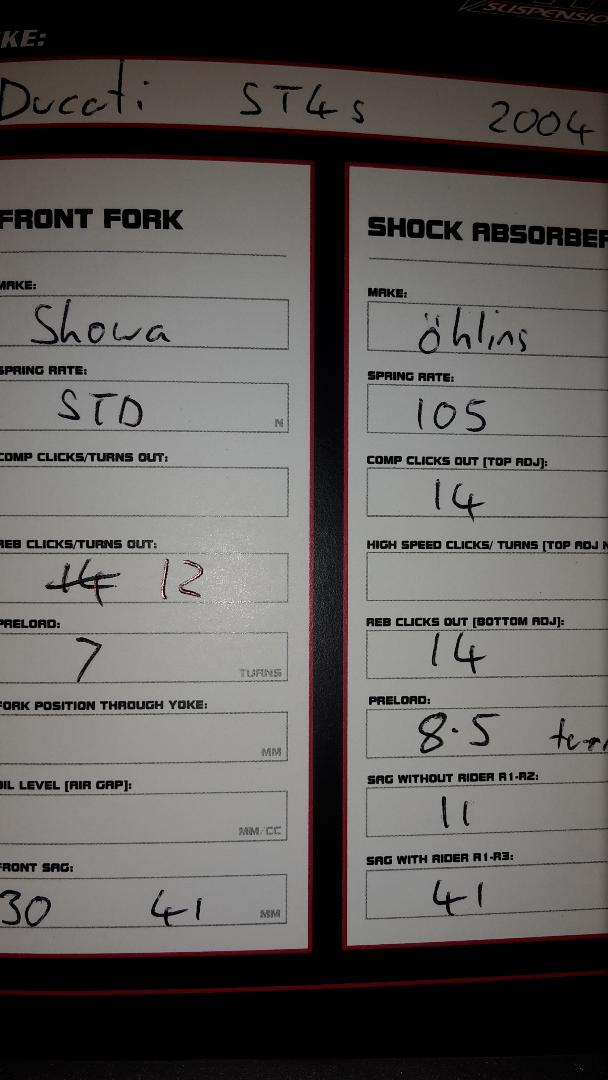 SUSPENSIO
KE:
Ducati ST4s 2004
FRONT FORK
MAKE:
Showa
SPRING RATE:
STD N
COMP CLICKS/TURNS OUT:
REB CLICKS/TURNS OUT:
14 12
PRELOAD:
7 TURNS
FORK POSITION THROUGH YOKE:
MM
OIL LEVEL [AIR GAP]:
MM/CC
FRONT SAG:
30 41 MM
SHOCK ABSORBER
MAKE:
öhlins
SPRING RATE:
105
COMP CLICKS OUT [TOP ADJ]:
14
HIGH SPEED CLICKS/ TURNS [TOP ADJ N
REB CLICKS OUT [BOTTOM ADJ]:
14
PRELOAD:
8.5
SAG WITHOUT RIDER R1-R2:
11
SAG WITH RIDER R1-R3:
41